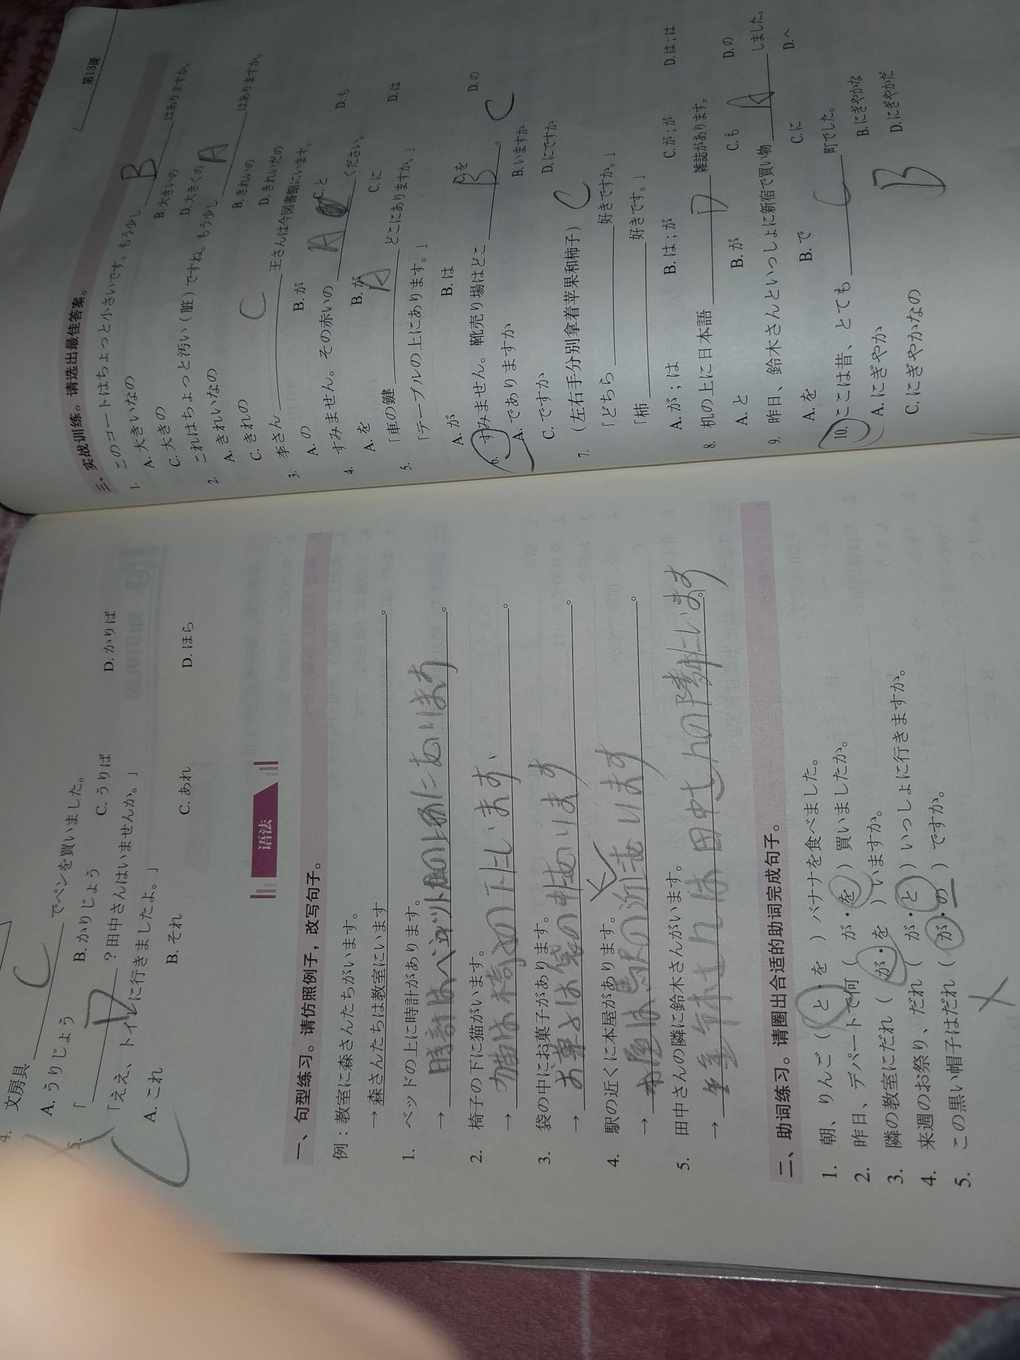 4. 文房具 C でペンを買いました。
A. うりじょう B. かりじょう C. うりば D. かりば
5. 「 D ？田中さんはいませんか。」
「ええ、トイレに行きましたよ。」
A. これ B. それ C. あれ D. ほら
语法
一、句型练习。请仿照例子，改写句子。
例：教室に森さんたちがいます。
→ 森さんたちは教室にいます 。
1. ベッドの上に時計があります。
→ 時計はベッドの上にあります 。
2. 椅子の下に猫がいます。
→ 猫は椅子の下にいます 。
3. 袋の中にお菓子があります。
→ お菓子は袋の中あります 。
4. 駅の近くに本屋があります。
→ は駅の近あります 。
5. 田中さんの隣に鈴木さんがいます。
→ 木さんは田中さんの隣にいます 。
二、助词练习。请圈出合适的助词完成句子。
1. 朝、りんご（ と・を ）バナナを食べました。
2. 昨日、デパートで何（ が・を ）買いましたか。
3. 隣の教室にだれ（ が・を ）いますか。
4. 来週のお祭り、だれ（ が・と ）いっしょに行きますか。
5. この黒い帽子はだれ（ が・の ）ですか。
第13课
三、实战训练。请选出最佳答案。
1. このコートはちょっと小さいです。もう少し B はありますか。
A. 大きいなの B. 大きいの
C. 大きの D. 大きくの
2. これはちょっと汚い（脏）ですね。もう少し A はありますか。
A. きれいなの B. きれいの
C. きれの D. きれいだの
3. 李さん C 王さんは今図書館にいます。
A. の B. が C. と D. も
4. すみません。その赤いの A ください。
A. を B. が C. に D. は
5. 「車の鍵 A どこにありますか。」
「テーブルの上にあります。」
A. が B. は C. を D. の
6. すみません。靴売り場はどこ B 。 C
A. でありますか B. いますか
C. ですか D. にですか
7. （左右手分别拿着苹果和柿子） C
「どちら 好きですか。」
「柿 好きです。」
A. が；は B. は；が C. が；が D. は；は
8. 机の上に日本語 D 雑誌があります。
A. と B. が C. も D. の
9. 昨日、鈴木さんといっしょに新宿で買い物 A しました。
A. を B. で C. に D. へ
10. ここは昔、とても C 町でした。
A. にぎやか B. にぎやかな B
C. にぎやかなの D. にぎやかだ